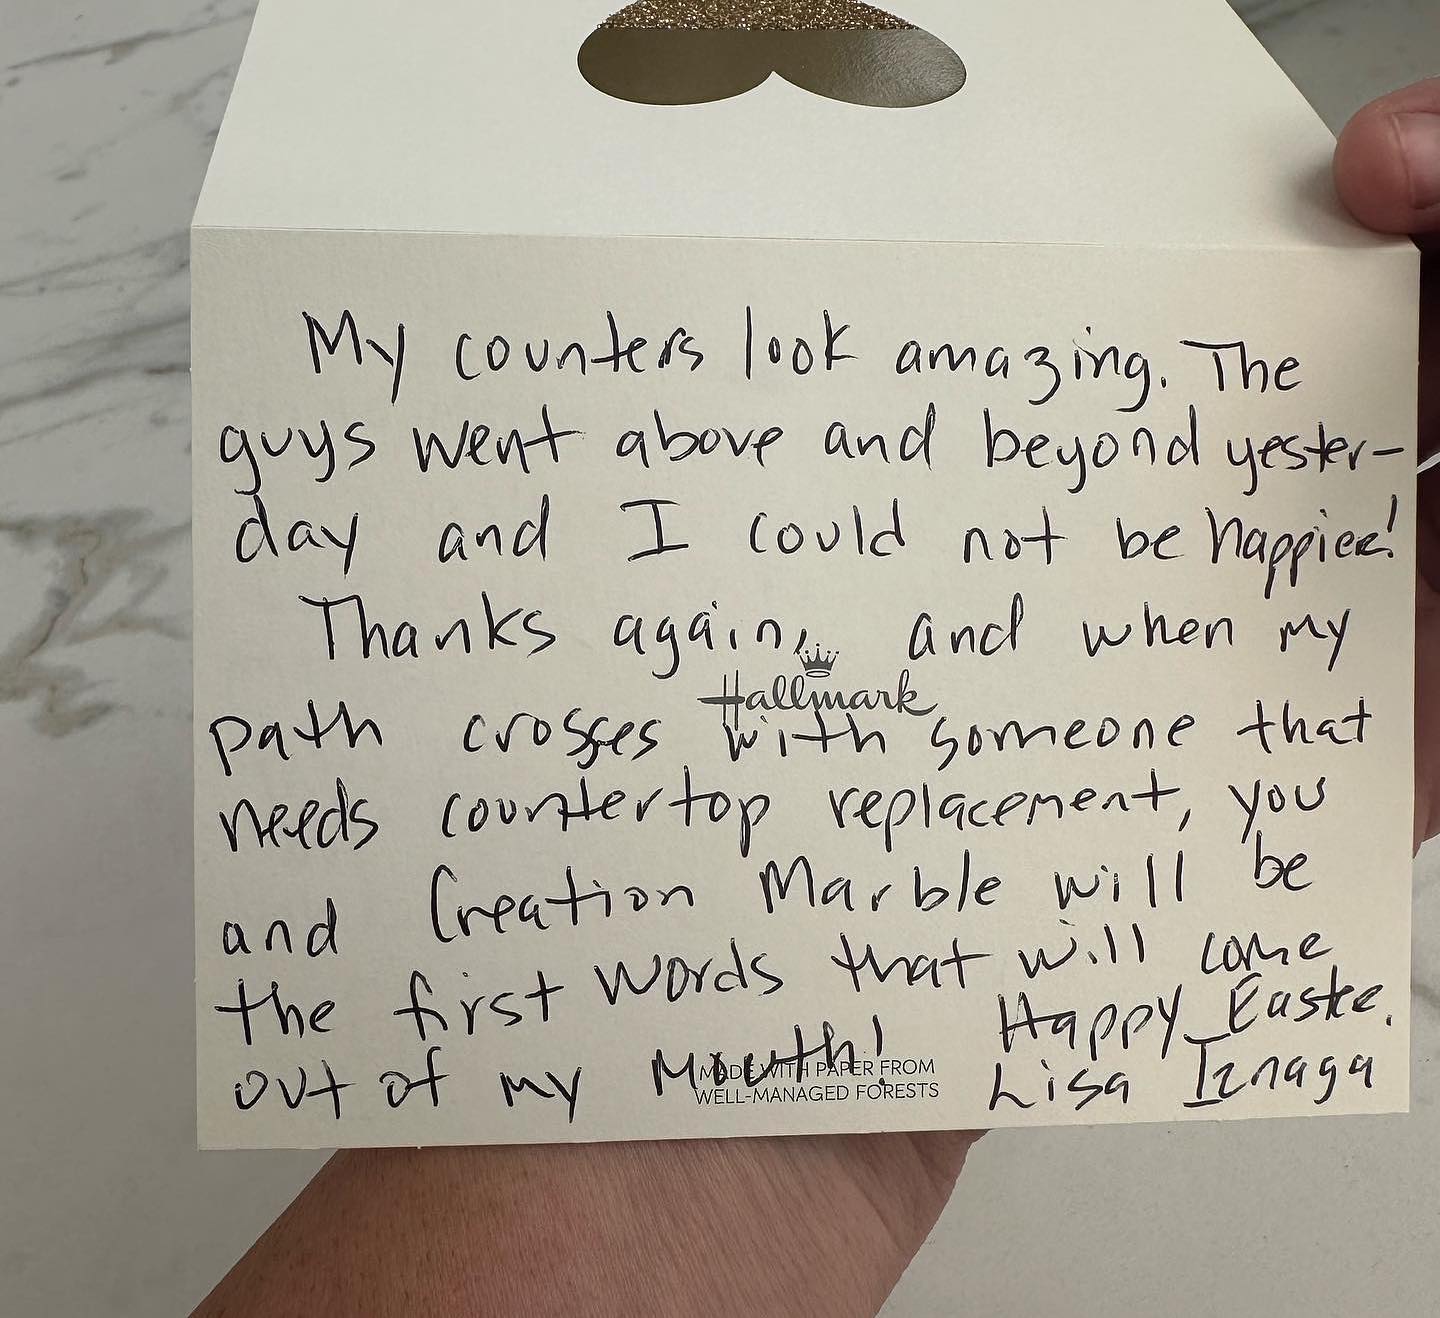 My counters look amazing. The
guys went above and beyond yester-
day and I could not be happier!
Thanks again, and when my
Hallmark
path crosses with someone that
needs countertop replacement, you
and Creation Marble will be
the first words that will come
out of my mouth!
Happy Easter.
MADE WITH PAPER FROM
WELL-MANAGED FORESTS
Lisa Iznaga